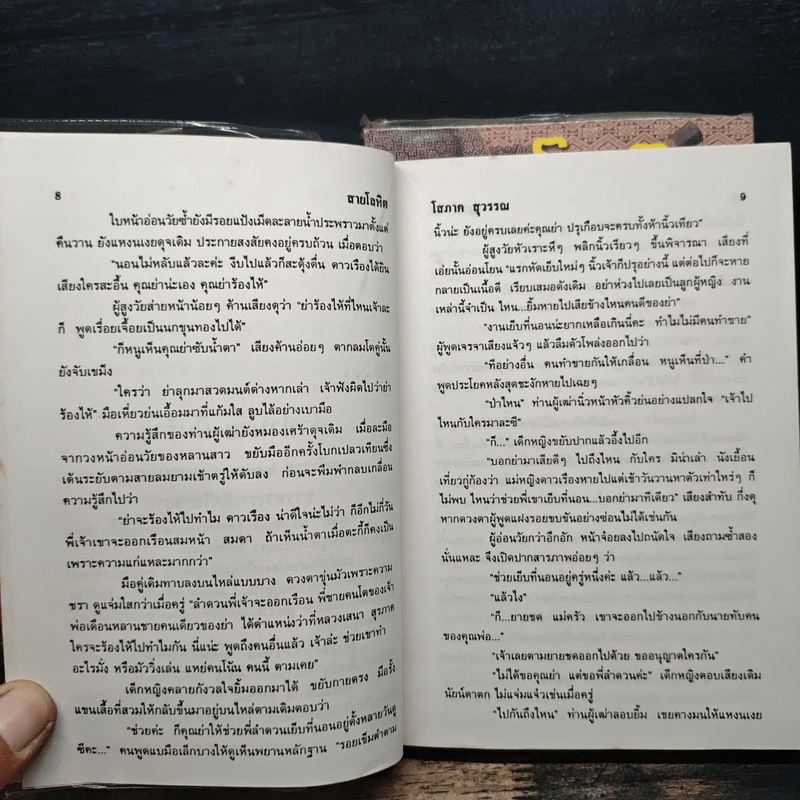 8
สายโลหิต
ใบหน้าอ่อนวัยซ้ำยังมีรอยแป้งเม็ดละลายน้ำประพราวมาตั้งแต่
คืนวาน ยังแหงนเงยดุจเดิม ประกายสงสัยคงอยู่ครบถ้วน เมื่อตอบว่า
“นอนไม่หลับแล้วละค่ะ งีบไปแล้วก็สะดุ้งตื่น ดาวเรืองได้ยิน
เสียงใครสะอื้น คุณย่าน่ะเอง คุณย่าร้องไห้”
ผู้สูงวัยส่ายหน้าน้อยๆ ค้านเสียงดุว่า “ย่าร้องไห้ที่ไหนเจ้าละ
ก็ พูดเรื่อยเจื้อยเป็นนกขุนทองไปได้”
“ก็หนูเห็นคุณย่าซับน้ำตา” เสียงค้านอ่อยๆ ตากลมโตคู่นั้น
ยังจับเขม็ง
“ใครว่า ย่าลุกมาสวดมนต์ต่างหากเล่า เจ้าฟังผิดไปว่าย่า
ร้องไห้” มือเหี่ยวย่นเอื้อมมาที่แก้มใส ลูบไล้อย่างเบามือ
ความรู้สึกของท่านผู้เฒ่ายังหมองเศร้าดุจเดิม เมื่อละมือ
จากวงหน้าอ่อนวัยของหลานสาว ขยับมืออีกครั้งโบกเปลวเทียนซึ่ง
เต้นระริบตามสายลมยามเช้าตรู่ให้ดับลง ก่อนจะพึมพำกลบเกลื่อน
ความรู้สึกไปว่า
“ย่าจะร้องไห้ไปทำไม ดาวเรือง น่าดีใจน่ะไม่ว่า ก็อีกไม่กี่วัน
พี่เจ้าเขาจะออกเรือนสมหน้า สมตา ถ้าเห็นน้ำตาเมื่อตะกี้ก็คงเป็น
เพราะความแก่แหละมากกว่า”
มือคู่เดิมทาบลงบนไหล่แบบบาง ดวงตาขุ่นมัวเพราะความ
ชรา ดูแจ่มใสกว่าเมื่อครู่ “ลำดวนพี่เจ้าจะออกเรือน พี่ชายคนโตของเจ้า
พ่อเดือนหลานชายคนเดียวของย่า ได้ตำแหน่งว่าที่หลวงเสนา สุรภาค
ใครจะร้องไห้ไปทำไมกัน นี่แน่ะ พูดถึงคนอื่นแล้ว เจ้าล่ะ ช่วยเขาทำ
อะไรมั่ง หรือมัววิ่งเล่น แหย่คนโน้น คนนี้ ตามเคย”
เด็กหญิงคลายกังวลใจยิ้มออกมาได้ ขยับกายตรง มือรั้ง
แขนเสื้อที่สวมให้กลับขึ้นมาอยู่บนไหล่ตามเดิมตอบว่า
“ช่วยค่ะ ก็คุณย่าให้ช่วยพี่ลำดวนเย็บที่นอนอยู่ตั้งหลายวันดู
ซีคะ...” คนพูดแบมือเล็กบางให้ดูเห็นพยานหลักฐาน “รอยเข็มตำตาม
โสภาค สุวรรณ
9
นิ้วน่ะ ยังอยู่ครบเลยค่ะคุณย่า ปรุเกือบจะครบทั้งห้านิ้วเทียว”
ผู้สูงวัยหัวเราะหึๆ พลิกนิ้วเรียวๆ ขึ้นพิจารณา เสียงที่
เอ่ยนั้นอ่อนโยน “แรกหัดเย็บใหม่ๆ นิ้วเจ้าก็ปรุอย่างนี้ แต่ต่อไปก็จะหาย
กลายเป็นเนื้อดี เรียบเสมอดังเดิม อย่าห่วงไปเลยเป็นลูกผู้หญิง งาน
เหล่านี้จำเป็น ไหน...ยิ้มหายไปเสียข้างไหนคนดีของย่า”
“งานเย็บที่นอนน่ะยากเหลือเกินนี่คะ ทำไมไม่มีคนทำขาย”
ผู้พูดเจรจาเสียงแจ้วๆ แล้วลืมตัวโพล่งออกไปว่า
“ทีอย่างอื่น คนทำขายกันให้เกลื่อน หนูเห็นที่ป่า...” คำ
พูดประโยคหลังสุดชะงักหายไปเฉยๆ
“ป่าไหน” ท่านผู้เฒ่านิ่วหน้าหัวคิ้วย่นอย่างแปลกใจ “เจ้าไป
ไหนกับใครมาละซี”
“ก็...” เด็กหญิงขยับปากแล้วอึ้งไปอีก
“บอกย่ามาเสียดีๆ ไปถึงไหน กับใคร มิน่าเล่า นังเยื้อน
เที่ยวกู่ก้องว่า แม่หญิงดาวเรืองหายไปแต่เช้าวันวานหาตัวเท่าไหร่ๆ ก็
ไม่พบ ไหนว่าช่วยพี่เขาเย็บที่นอน...บอกย่ามาทีเดียว” เสียงสำทับ กึ่งดุ
หากดวงตาผู้พูดแฝงรอยขบขันอย่างซ่อนไม่ได้เช่นกัน
ผู้อ่อนวัยกว่าอึกอัก หน้าจ๋อยลงไปถนัดใจ เสียงถามซ้ำสอง
นั่นแหละ จึงเปิดปากสารภาพอ่อยๆ ว่า
“ช่วยเย็บที่นอนอยู่ครู่หนึ่งค่ะ แล้ว...แล้ว...”
“แล้วไง”
“ก็...ยายชด แม่ครัว เขาจะออกไปข้างนอกกับนายทับคน
ของคุณพ่อ...”
“เจ้าเลยตามยายชดออกไปด้วย ขออนุญาตใครกัน”
“ไม่ได้ขอคุณย่า แต่ขอพี่ลำดวนค่ะ” เด็กหญิงตอบเสียงเดิม
นัยน์ตาตก ไม่แจ่มแจ๋วเช่นเมื่อครู่
“ไปกันถึงไหน” ท่านผู้เฒ่าลอบยิ้ม เชยคางมนให้แหงนเงย